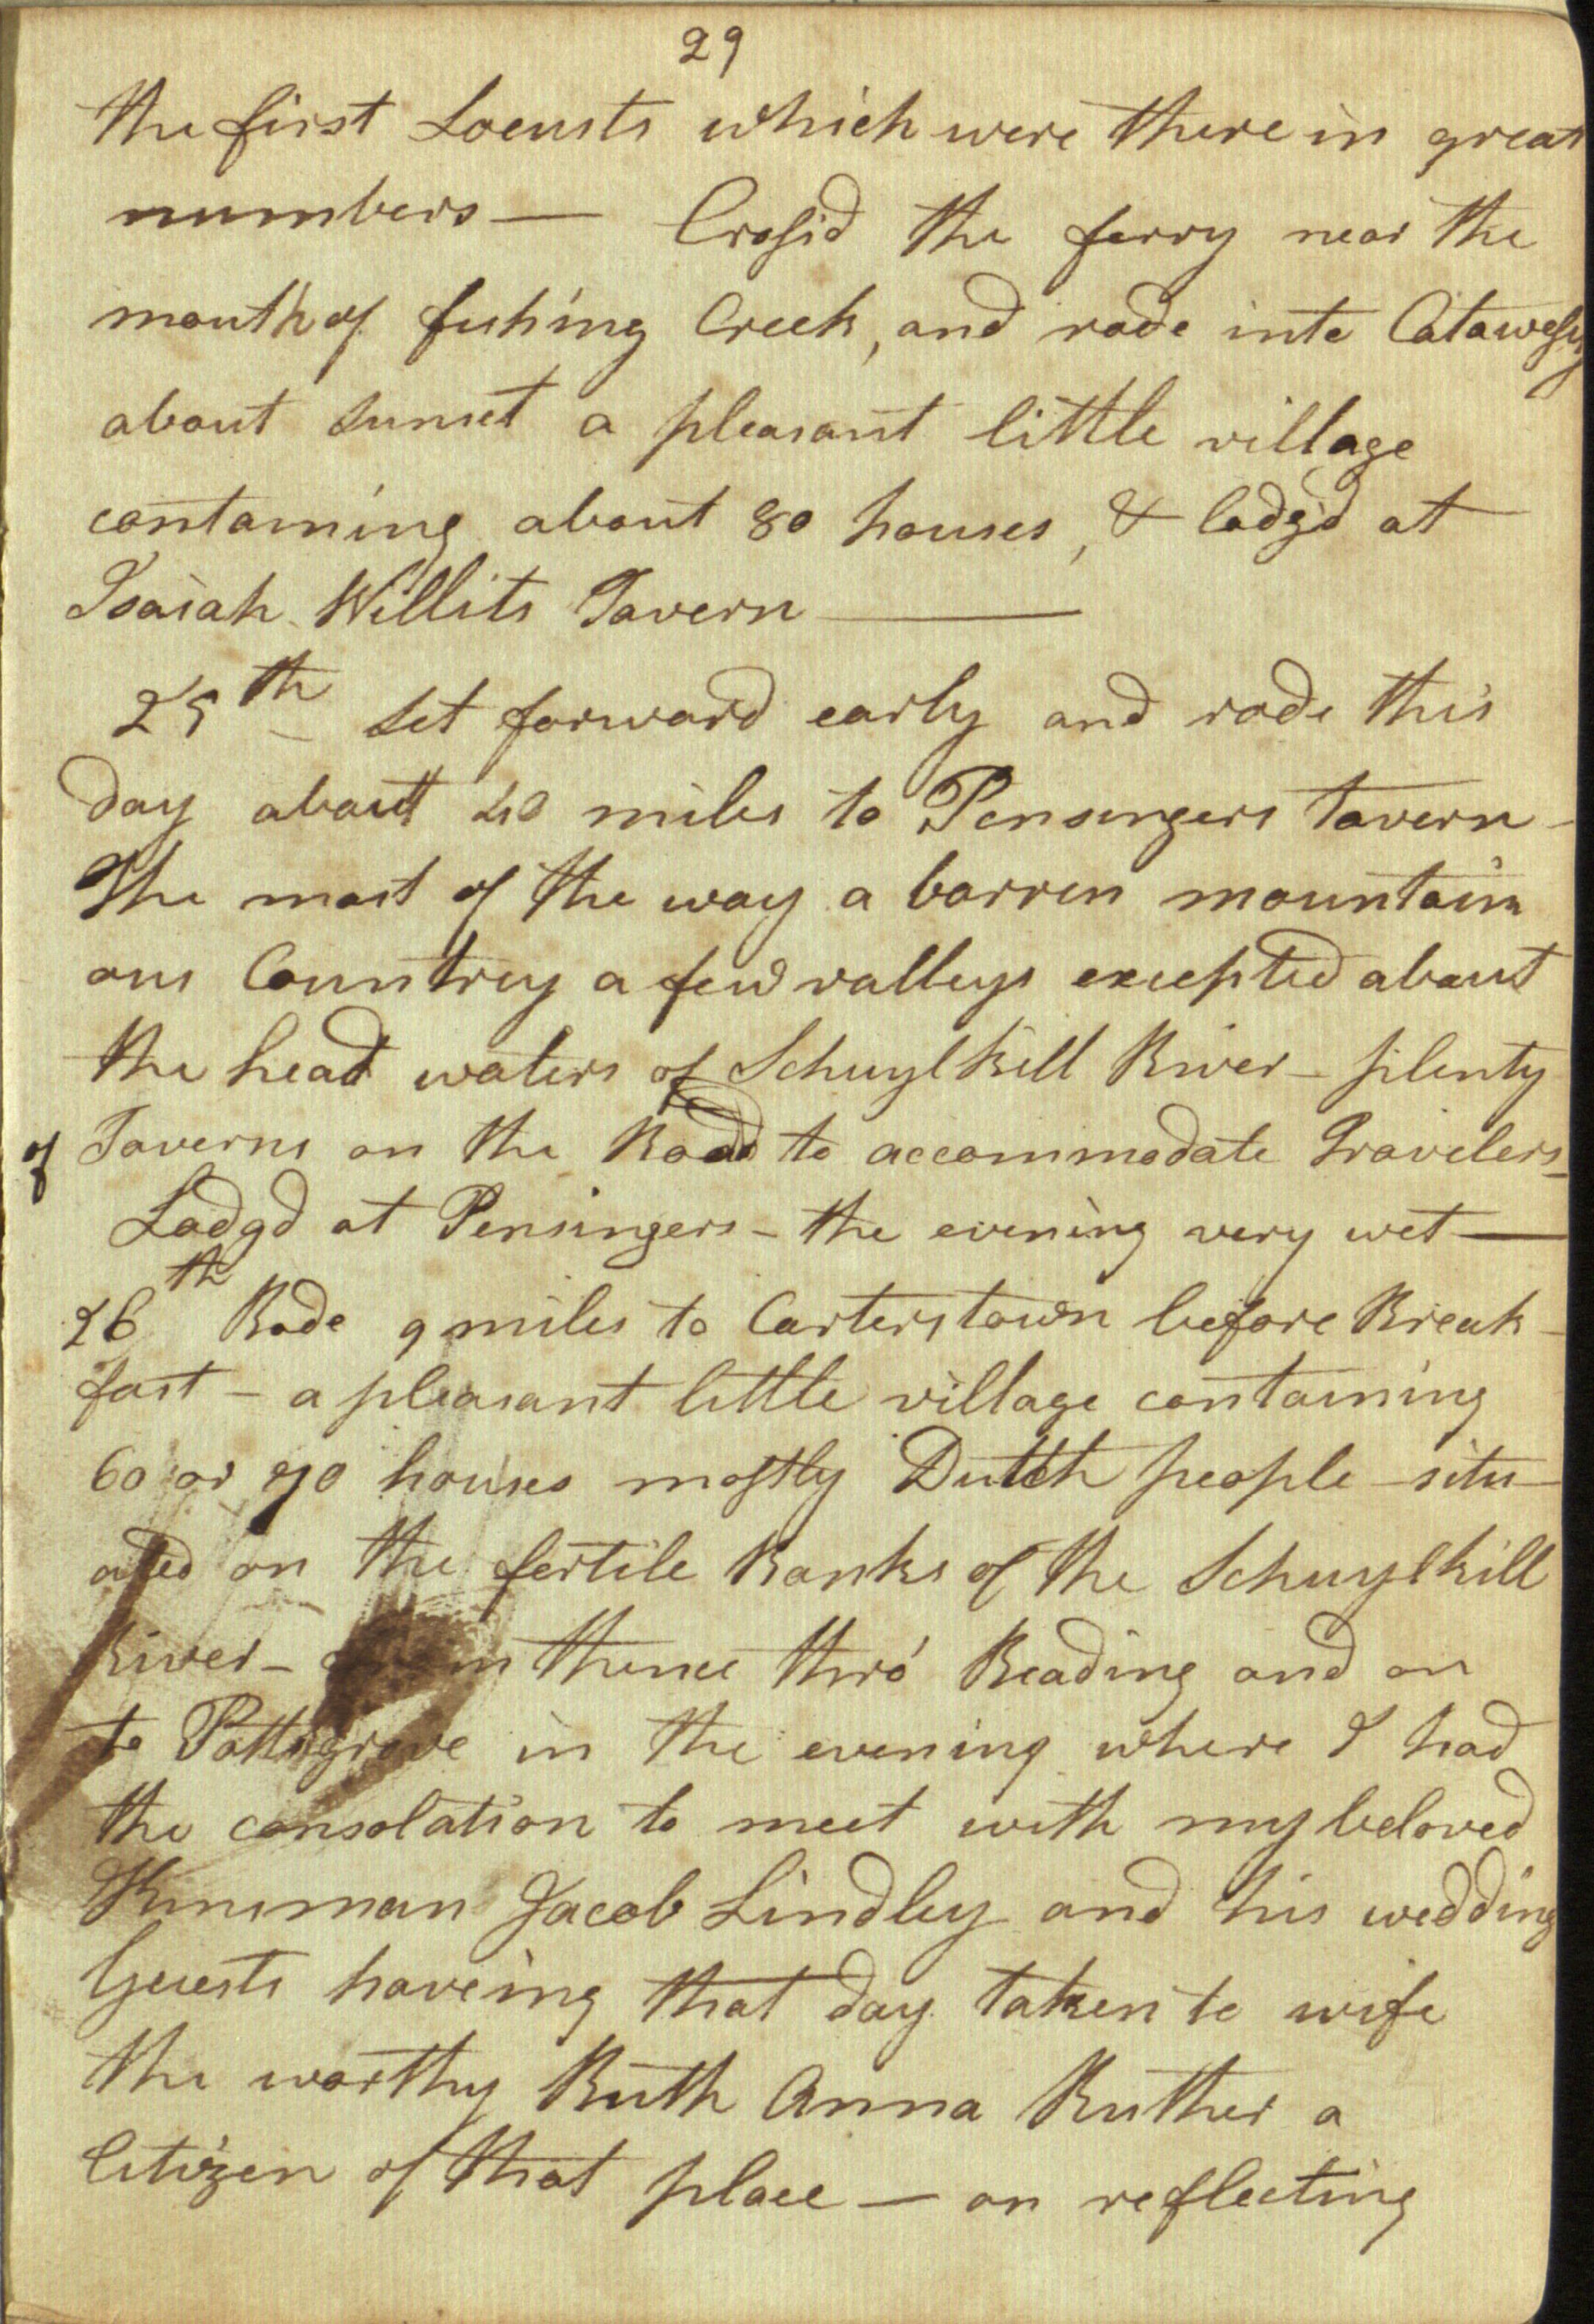 29
the first Locusts which were there in great
numbers — Crossid the ferry near the
mouth of fishing Creek, and rode into Catawessy
about sunset a pleasant little village
containing about 80 houses, & lodg'd at
Isaiah Willits Tavern —
25th set forward early and rode this
day about 40 miles to Pensingers tavern -
The most of the way a barren mountain
ous Country a few valleys excepted about
the head waters of Schuylkill River - plenty
of Taverns on the Road to accommodate Travelers -
Lodgd at Pensingers - the evening very wet —
26th Rode 9 miles to Carterstown before Break -
fast - a pleasant little village containing
60 or 70 houses mostly Dutch people - situ -
ated on the fertile Banks of the Schuylkill
River - from thence thro' Reading and on
to Pottsgrove in the evening where I had
the consolation to meet with my beloved
Kinsman Jacob Lindley and his wedding
Guests haveing that day taken to wife
the worthy Ruth Anna Rutter a
Citizen of that place — on reflecting